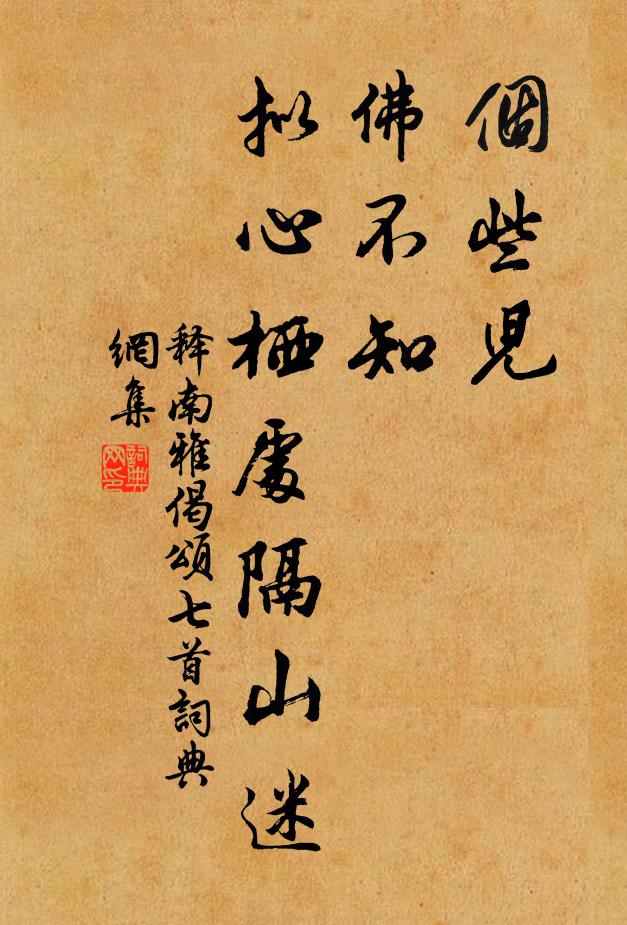 個些兒
佛不知
拟心栖處隔山迷
释南雅偈頌七首詞典
網集
詞典
网印